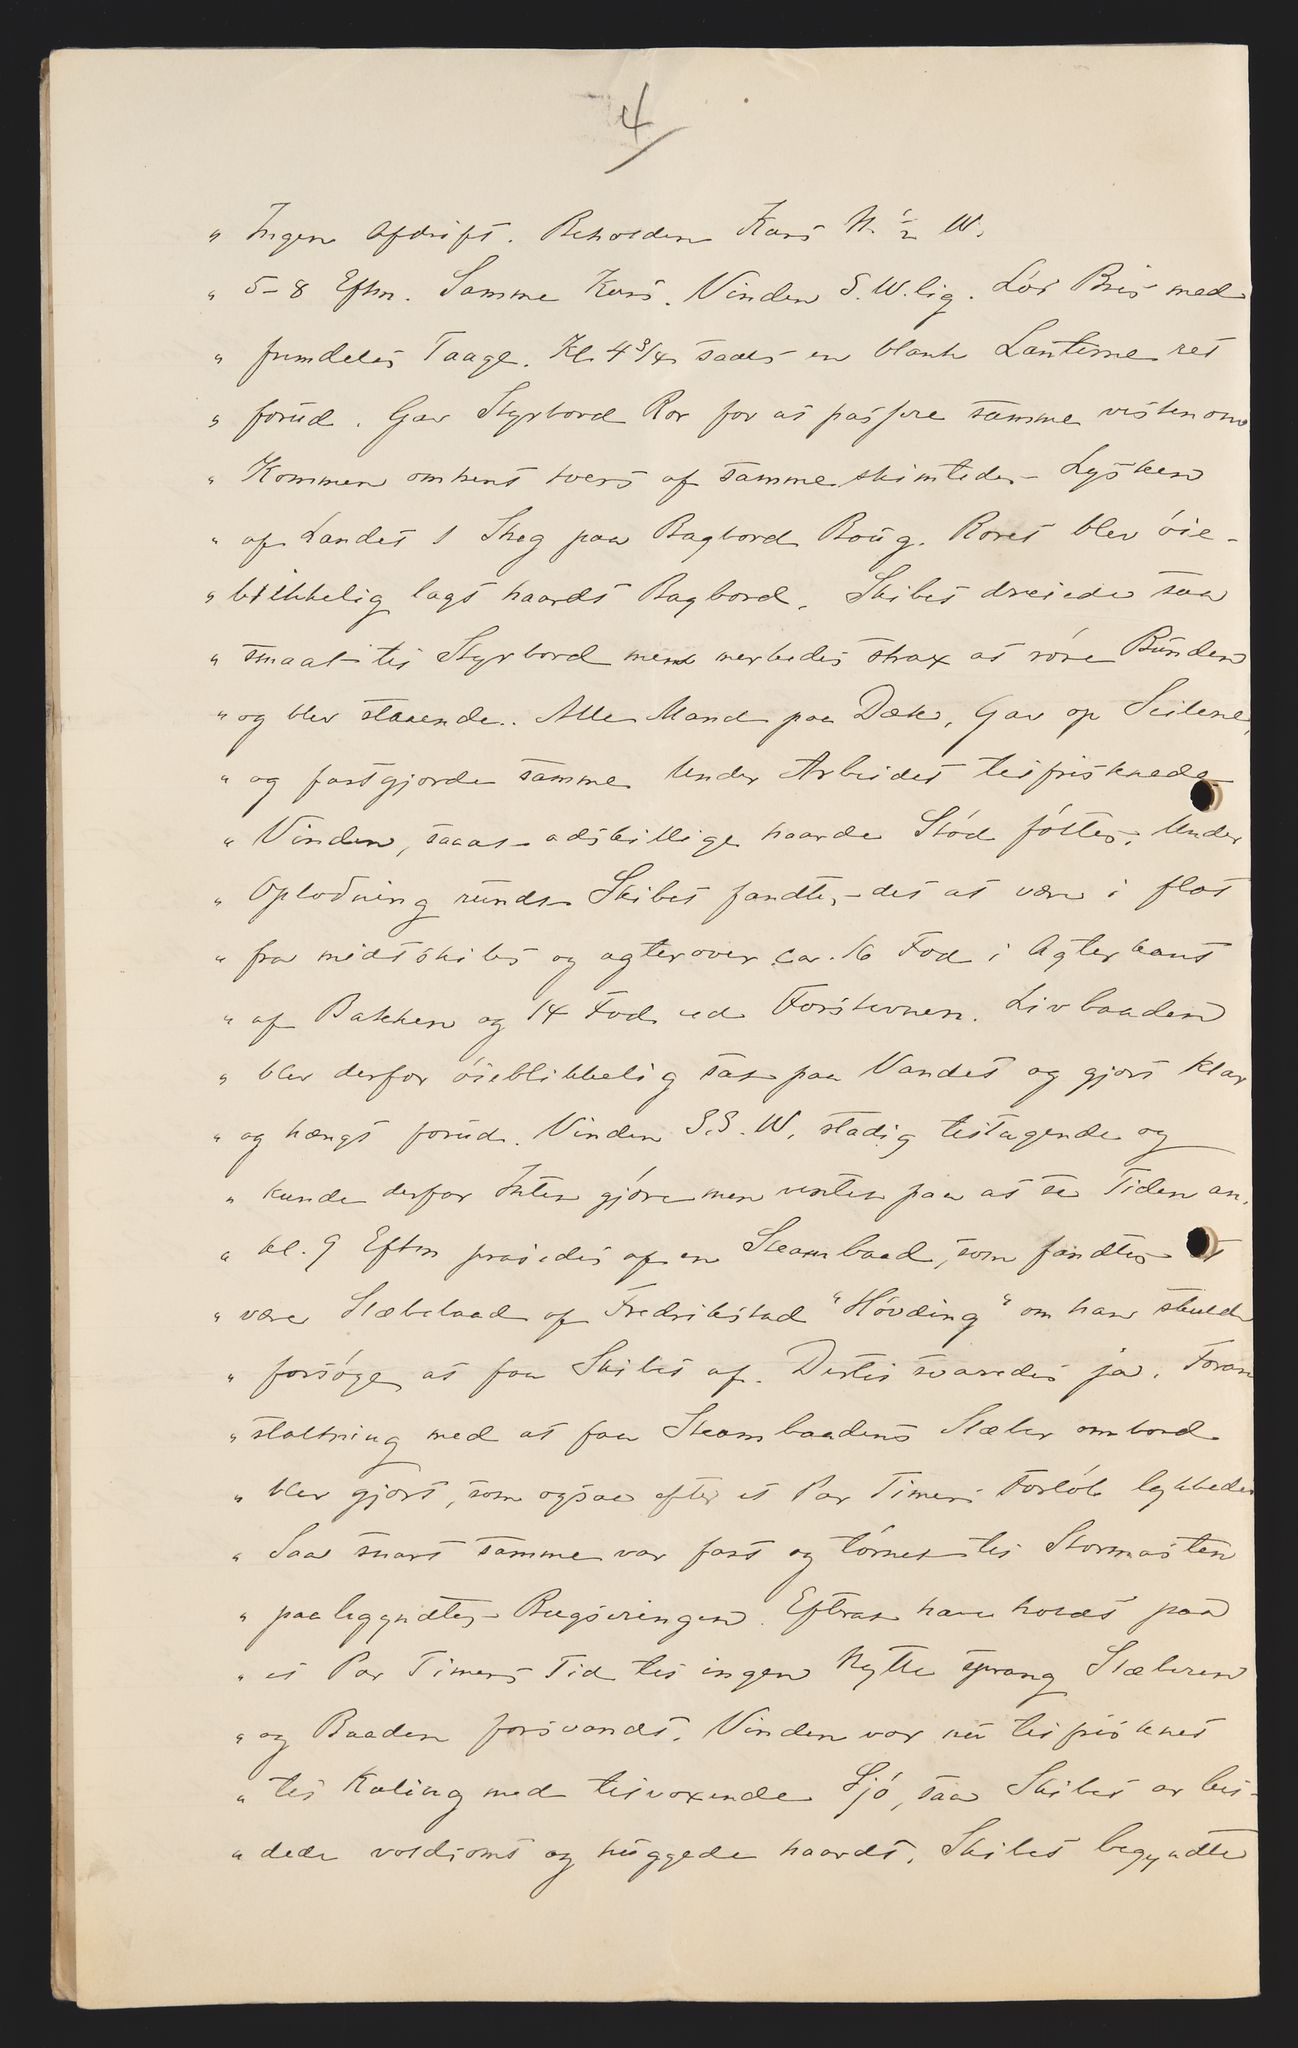 4
" Ingen Afdrift. Beholden Kurs N. ½ W.
" 5-8 Eftm. Samme Kurs. Vinden S.W.lig. Lør Bris med
" fremdeles Taage. Kl. 4 3/4 saaes en blank Lanterne ret
" forud. Gav Styrbord Ror for at passere samme vestenom
" Kommen omtrent tvers af samme skimtedes Lysken
" af Landet 1 Streg paa Bagbord Boug. Roret blev øie-
" blikkelig lagt haardt Bagbord. Skibet dreiede saa
" smaat til Styrbord men merkedes strax at røre Bunden
" og blev staaende. Alle Mand paa Dæk, Gav op Seilene,
" og fastgjorde samme. Under Arbeidet tilfrisknede
" Vinden, saaat adskillige haarde Stød føltes. Under
" Oplodning rundt Skibet fandtes det at være i flot
" fra midtskibs og agterover ca. 16 Fod i Agterkant
" af Bakken og 14 Fod ved Forstevnen. Livbaaden
" blev derfor øieblikkelig sat paa Vandet og gjort klar
" og hængt forud. Vinden S.S.W. stadig tiltagende og
" kunde derfor Intet gjøre men vente paa at se Tiden an.
" Kl. 9 Eftm praiedes af en Steambaad, som fandtes at
" være Slæbebaad af Fredrikstad "Høvding" om han skulde
" forsøge at faa Skibet af. Dertil svaredes ja. Foran
" staltning med at faa Steambaadens Slæber ombord
" blev gjort, som ogsaa efter et Par Timers Forløb lykkedes
" Saa snart samme var fast og tørnet til Stormasten
" paabegyndtes Bugseringen. Efterat have holdt paa
" et Par Timers Tid til ingen Nytte sprang Slæberen
" og Baaden forsvandt. Vinden var nu tilfrisknet
" til Kuling med tilvoxende Sjø, saa Skibet ar bei-
" dede voldsomt og huggede haardt. Skibet begyndte